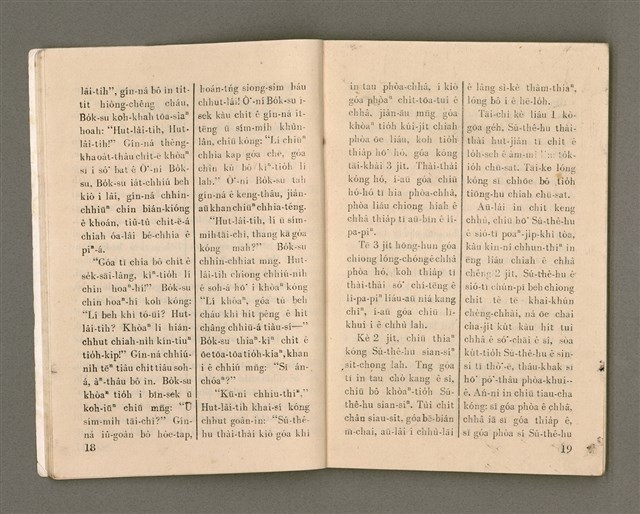 lâi-tih", gín-ná bô in tit-
tit hiòng-chêng cháu,
Bo̍k-su koh khah tōa-siaⁿ
hoah: "Hut-lâi-tih, Hut-
lâi-tih!" Gín-ná thêng-
kha oa̍t-thâu chit-ē khòaⁿ
sī i só͘ bat ê O͘-ní Bo̍k-
su, Bo̍k-su ia̍t-chhiú beh
kiò i lâi, gín-ná chhin-
chhiūⁿ chin biān-kióng
ê khoán, tiû-tû chit-ē-á
chiah óa-lâi bé-chhia ê
piⁿ-á.
"Góa tī chia bô chit ê
se̍k-sāi-lâng, kīⁿ-tio̍h lí
chin hoaⁿ-hí!" Bo̍k-su
chin hoaⁿ-hí koh kóng:
"Lí beh khì tó-ūi? Hut-
lâi-tih? Khòaⁿ lí hiān-
chhut chiah-ni̍h kín-tiuⁿ
tio̍h-kip!" Gín-ná chhiú-
ni̍h tēⁿ tiâu chit tiâu soh-
á, àⁿ-thâu bô in. Bo̍k-su
khòaⁿ tio̍h i bīn-sek ū
koh-iūⁿ chiū mn̄g: "Ū
sím-mi̍h tāi-chì?" Gín-
ná iû-goân bô hôe-tap,
18
hoán-tńg siong-sim háu
chhut-lâi! O͘-ní Bo̍k-su i-
sek kàu chit ê gín-ná it-
tēng ū sím-mi̍h khùn-
lân, chiū kóng: "Lí chiūⁿ
chhia kap góa chē, góa
chin kú bô kīⁿ-tio̍h lí
lah." O͘-ní Bo̍k-su tah
gín-ná ê keng-thâu, jiân-
āu khan chiūⁿ chhia-téng.
"Hut-lâi-tih, lí ū sím-
mi̍h tāi-chì, thang kā góa
kóng mah?" Bo̍k-su
chhin-chhiat mn̄g. Hut-
lâi-tih chiong chhiú-ni̍h
ê soh-á hō͘ i khòaⁿ kóng
"Lí khòaⁿ, góa tú beh
cháu khì hit pêng ê hit
châng chhiū-á tiàu-sí—"
Bo̍k-su thiaⁿ-kìⁿ chit ê
ōe tōa-tōa tio̍h-kiaⁿ, khan
i ê chhiú mn̄g: "Sī án-
chóaⁿ?"
"Kū-nî chhiu-thiⁿ,"
Hut-lâi-tih khai-sí kóng
chhut goân-in: "Sú-thê-
hu thài-thài kiò góa khì
in tau phòa-chhâ, i kiò
góa phòaⁿ chit-tōa-tui ê
chhâ, jiân-āu mn̄g góa
khòaⁿ tio̍h kúi-jit chiah
phòa ōe liáu, koh tio̍h
thia̍p hó͘ hó, góa kóng
tāi-khài 3 jit. Thài-thài
kóng hó, i-āu góa chiū
hó-hó tī hia phòa-chhâ,
phòa liáu chiong hiah ê
chhâ thia̍p tī āu-bīn ê lî-
pa-piⁿ.
Tē 3 ji̍t hông-hun góa
chiong lóng-chóng ê chhâ
phòa hó, koh thia̍p tī
thài-thài só͘ chí-tēng ê
lî-pa-piⁿ liáu-āu niá kang
chîⁿ, í-āu góa chiū lī-
khui i ê chhù lah.
Kè 2 jit, chiū thiaⁿ
kóng Sú-thê-hu sian-siⁿ
sit-chong lah. Tng góa
tī in tau chò kang ê sî,
chiū bô khòaⁿ-tio̍h Sú-
thê-hu sian-siⁿ. Tùi chit
chân siau-sit, góa bē-hiân
m̄-chai, āu-lâi i chhù-lāi
ê lâng sì-kè thàm-thiaⁿ,
lóng bô i ê hē-lo̍h.
Tāi-chì kè liáu 1 kò-
góa ge̍h, Sú-thê-hu thài-
thài hut-jiân tī chit ê
lo̍h-seh ê àm-mî
io̍h chū-sat. Tāi-ke lóng
kóng sī chhōe bô tio̍h
tiōng-hu chiah chū-sat.
Āu-lâi in chit keng
chhù, chiū hō͘ Sú-thê-hu
ê sió-tī poaⁿ-ji̍p-khì tòa,
kàu kin-nî chhun-thiⁿ in
ēng liáu chiah ê chhâ
chêng 2 ji̍t. Sú-thê-hu ê
sió-tī chún-pī beh chiong
chit tè tē khai-khún
chèng-chhài, ná ōe chai
cha-ji̍t ku̍t kàu hit tui
chhâ ê só͘-chāi ê sî, soa
ku̍t-tio̍h Sú-thê-hu ê sin-
si tī thô͘-ē, thâu-khak sī
hō͘ pó͘-thâu phòa-khui--
ê. Án-ni in chiū tiau-cha
kóng: sī góa phòa ê chhâ,
chhâ iā sī góa thia̍p ê,
sī góa phòa sí Sú-thê-hu
19